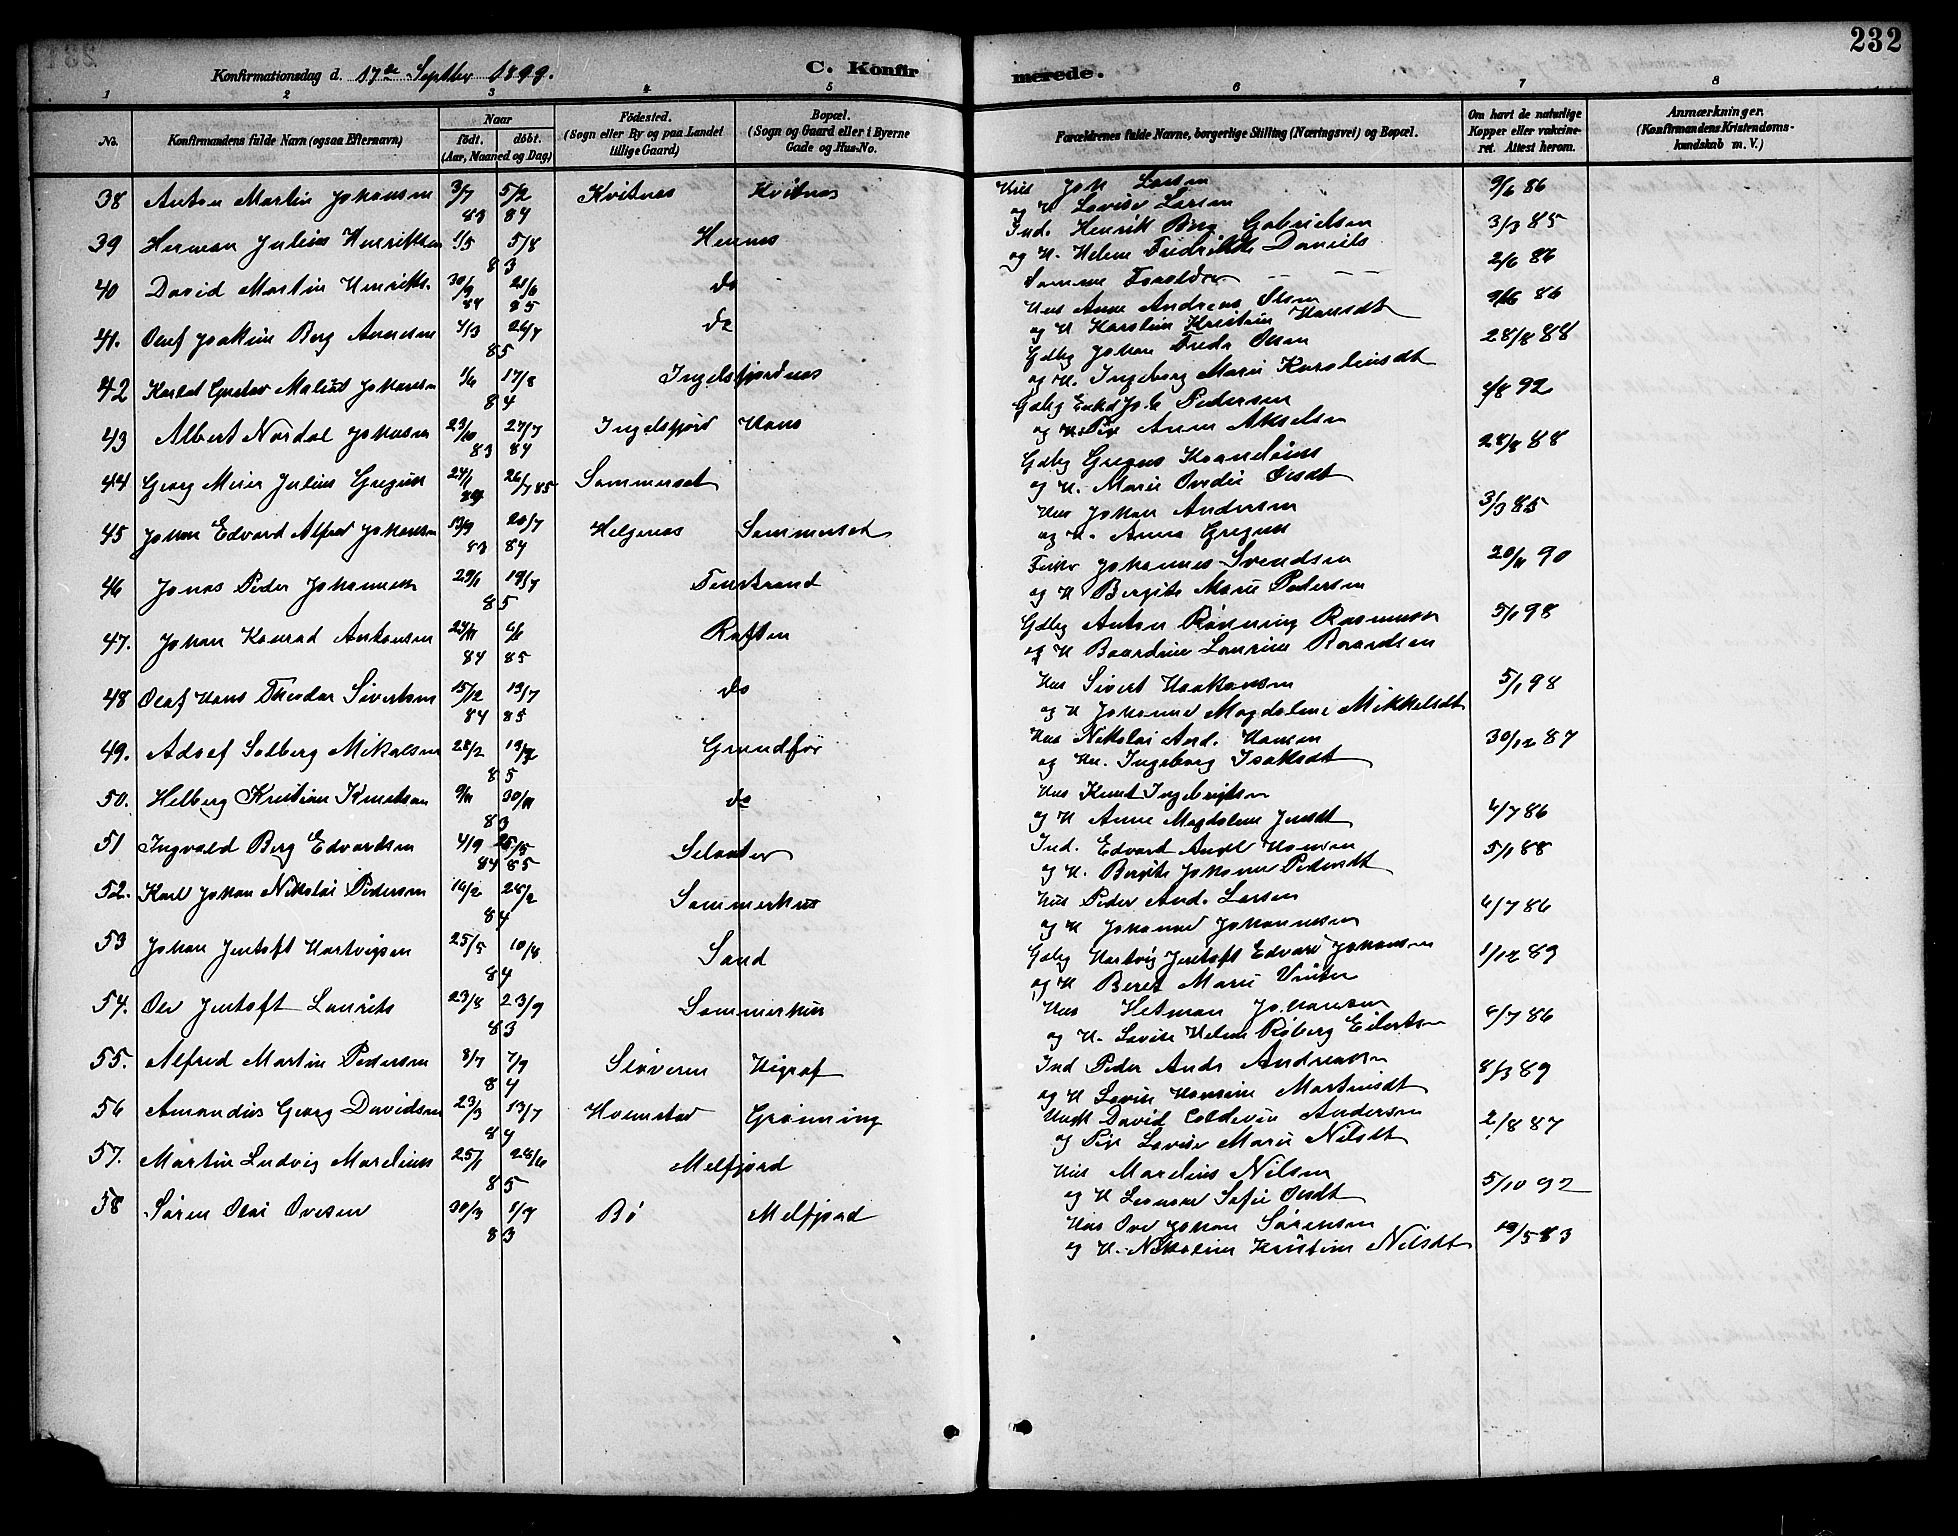 232
Konfirmationsdag d. 17de Septbr 1899. C. Konfirmerede.
1 2 3 4 5 6 7 8
No. Konfirmandens fulde Navn (ogsaa Efternavn) Naar födt. döbt. (Aar, Maaned og Dag) Födested. (Sogn eller By og paa Landet tillige Gaard) Bopæl. (Sogn og Gaard eller i Byerne Gade og Hus-No. Forældrenes fulde Navne, borgerlige Stilling (Næringsvei) og Bopæl. Om havt de naturlige Kopper eller vakcineret. Attest herom. Anmærkninger. (Konfirmandens Kristendomskundskab m. V.)
38 Anton Martin Johansen 3/7 83 5/2 84 Kvitnes Kvitnes Hus Joh Larsen 9/6 86
og H Lovise Larsen
39 Herman Julius Henriksen 1/5 5/8 83 Hennes Ind. Henrik Berg Gabrielsen 3/3 85
og H. Helene Fredrikke Daniels
40 David Martin Henriks. 30/9 84 21/6 85 do Samme Forældre 2/6 86
41. Oluf Joakim Berg Arnesen 4/3 26/7 85 do Hus Arne Andreas Olsen 86
og H Karoline Kristine Hansdt
42 Gustav Johansen 1/6 17/8 84 Ingelsfjordnes Gdbg Johan Fredr Olsen 28/8 88
og H. Ingeborg Marie Karoliusdt
43 Albert Nordal Johansen 23/10 83 27/7 84 Ingelsfjord Hans Gdbg Joh. Pedersen 92
og Pige Anne Akselsen
44 Georg Meier Julius Gregus 26/7 85 Sommerset Gdbg Gregus 28/8 88
og H. Marie Ovedie Olsdt
45 Johan Edvard Alfred Johansen 13/9 83 20/7 84 Helgenes Sommerset Hus Johan Andersen 3/3 85
og H. Anna Gregus
46 Jonas Peder Johannesen 29/1 19/7 85 Tenstrand Johannes Svendsen 90
og H Bergite Marie Pedersen
47. Johan Konrad Antonsen 84 85 Raften Gdbg Anton Rönning Rasmussen 5/1 98
og H Baardine Laurine Baardsen
48 Olaf Hans Theodor Sivertsen 15/12 84 19/7 85 do Hus Sivert Haakonsen 5/1 98
og H Johanne Magdalene Mikkelsdt
49. Adolf Solberg Mikalsen 28/2 85 Grundför Hus Nikolai And. Hansen 30/12 87
og Hu. Ingeborg Isaksdt
50. Helberg Kristian Knutsen 9/11 30/11 83 do Hus Knut Ingebrigtsen 4/7 86
og H Anne Magdalene Jensdt
51 Ingvald Berg Edvardsen 4/9 84 25/5 85 Selnater Ind. Edvard Hansen 5/1 88
og H. Bergite Johanne Pedersdt
52. Karl Johan Nikolai Pedersen 14/2 28/2 84 Sommerhus Hus Peder And. Larsen 4/7 86
og H Johanna Johannesen
53 Johan Jentoft Hartvigsen 25/5 10/8 84 Sand Gdbg Hartvig Jentoft Edvard Johansen 1/12 89
og H Beret Marie
54. Ole Jentoft Laurits 23/8 23/9 83 Sommerhus Hus Hetman Johansen 4/7 86
og H. Lovise Helene Röberg Eilertsen
55. Alfred Martin Pedersen 8/7 7/9 84 Slöveren Vigraf Ind Peder Andr Andreassen 8/3 89
og H Lovise Hansine Martinusdt
56 Amandius Georg Davidsen 23/3 13/7 84 Holmstad Grönning Ungk David Coldevin Andersen 2/8 87
og Pige Lovise Marie Nilsdt
57. Martin Ludvig Marelius 25/1 28/6 85 Melfjord Hus Marelius Nilsen 5/10 92
og H Leonore Sofie Olsdt
58 Sören Olai Ovesen 30/3 1/7 83 Bö Melfjord Hus Ove Johan Sörensen 19/5 83
og H. Nikoline Kristine Nilsdt